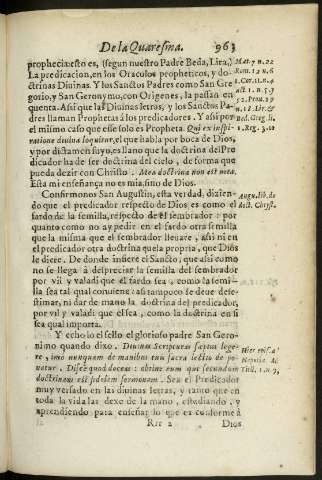 De la Quaresma. 963
prophecia: esto es, (segun nuestro Padre Beda, Lira.)
La predicacion, en los Oraculos propheticos, y do-
ctrinas Diuinas. Y los Sanctos Padres como San Gre
gorio, y San Geronymo, con Origenes, la passan en
quenta. Assi que las Diuinas letras, y los Sanctos Pa-
dres llaman Prophetas à los predicadores. Y assi por
el mismo caso que esse solo es Propheta. Qui ex inspi-
ratione diuina loquitur, el que habla por boca de Dios,
y por dictamen suyo, es llano que la doctrina del Pre
dicador ha de ser doctrina del cielo, de forma que
pueda dezir con Christo. Mea doctrina non est mea.
Esta mi enseñança no es mia, sino de Dios.
Confirmonos San Augustin, esta verdad, dizien-
do que el predicador respecto de Dios es como el
fardo de la semilla, respecto del sembrador: por
quanto como no ay pedir en el fardo otra semilla
que la misma que el sembrador lleuare, assi ni en
el predicador otra doctrina que la propria, que Dios
le diere. De donde infiere el Sancto, que assi como
no se llega à despreciar la semilla del sembrador
por vil y valadi que el fardo sea, como la semi-
lla sea tal qual conuiene: assi tampoco se deue defe-
stimar, ni dar de mano la doctrina del predicador,
por vil y valadi que el sea, como la doctrina en si
sea qual importa.
Y echolo el sello el glorioso padre San Gero-
nimo quando dixo. Diuinas Scripturas sæpius lege-
re, imò nunquam de manibus tuis sacra lectio de po-
natur. Disce quod doceas: obtine eum qui secundum
doctrinam est fidelem sermonem. Sea el Predicador
muy versado en las diuinas letras, y tanto que en
toda la vida las dexe de la mano, estudiando, y
aprendiendo para enseñar lo que es conforme à
Rrr 2 Dios
Mat. 7 n. 22
Rom. 12 n. 6
1. Cor. 11. n. 4
n. 12 Lir. &
Bed. Greg. li.
1. Reg. 3. 10
Augu. lib. de
doct. Christ.